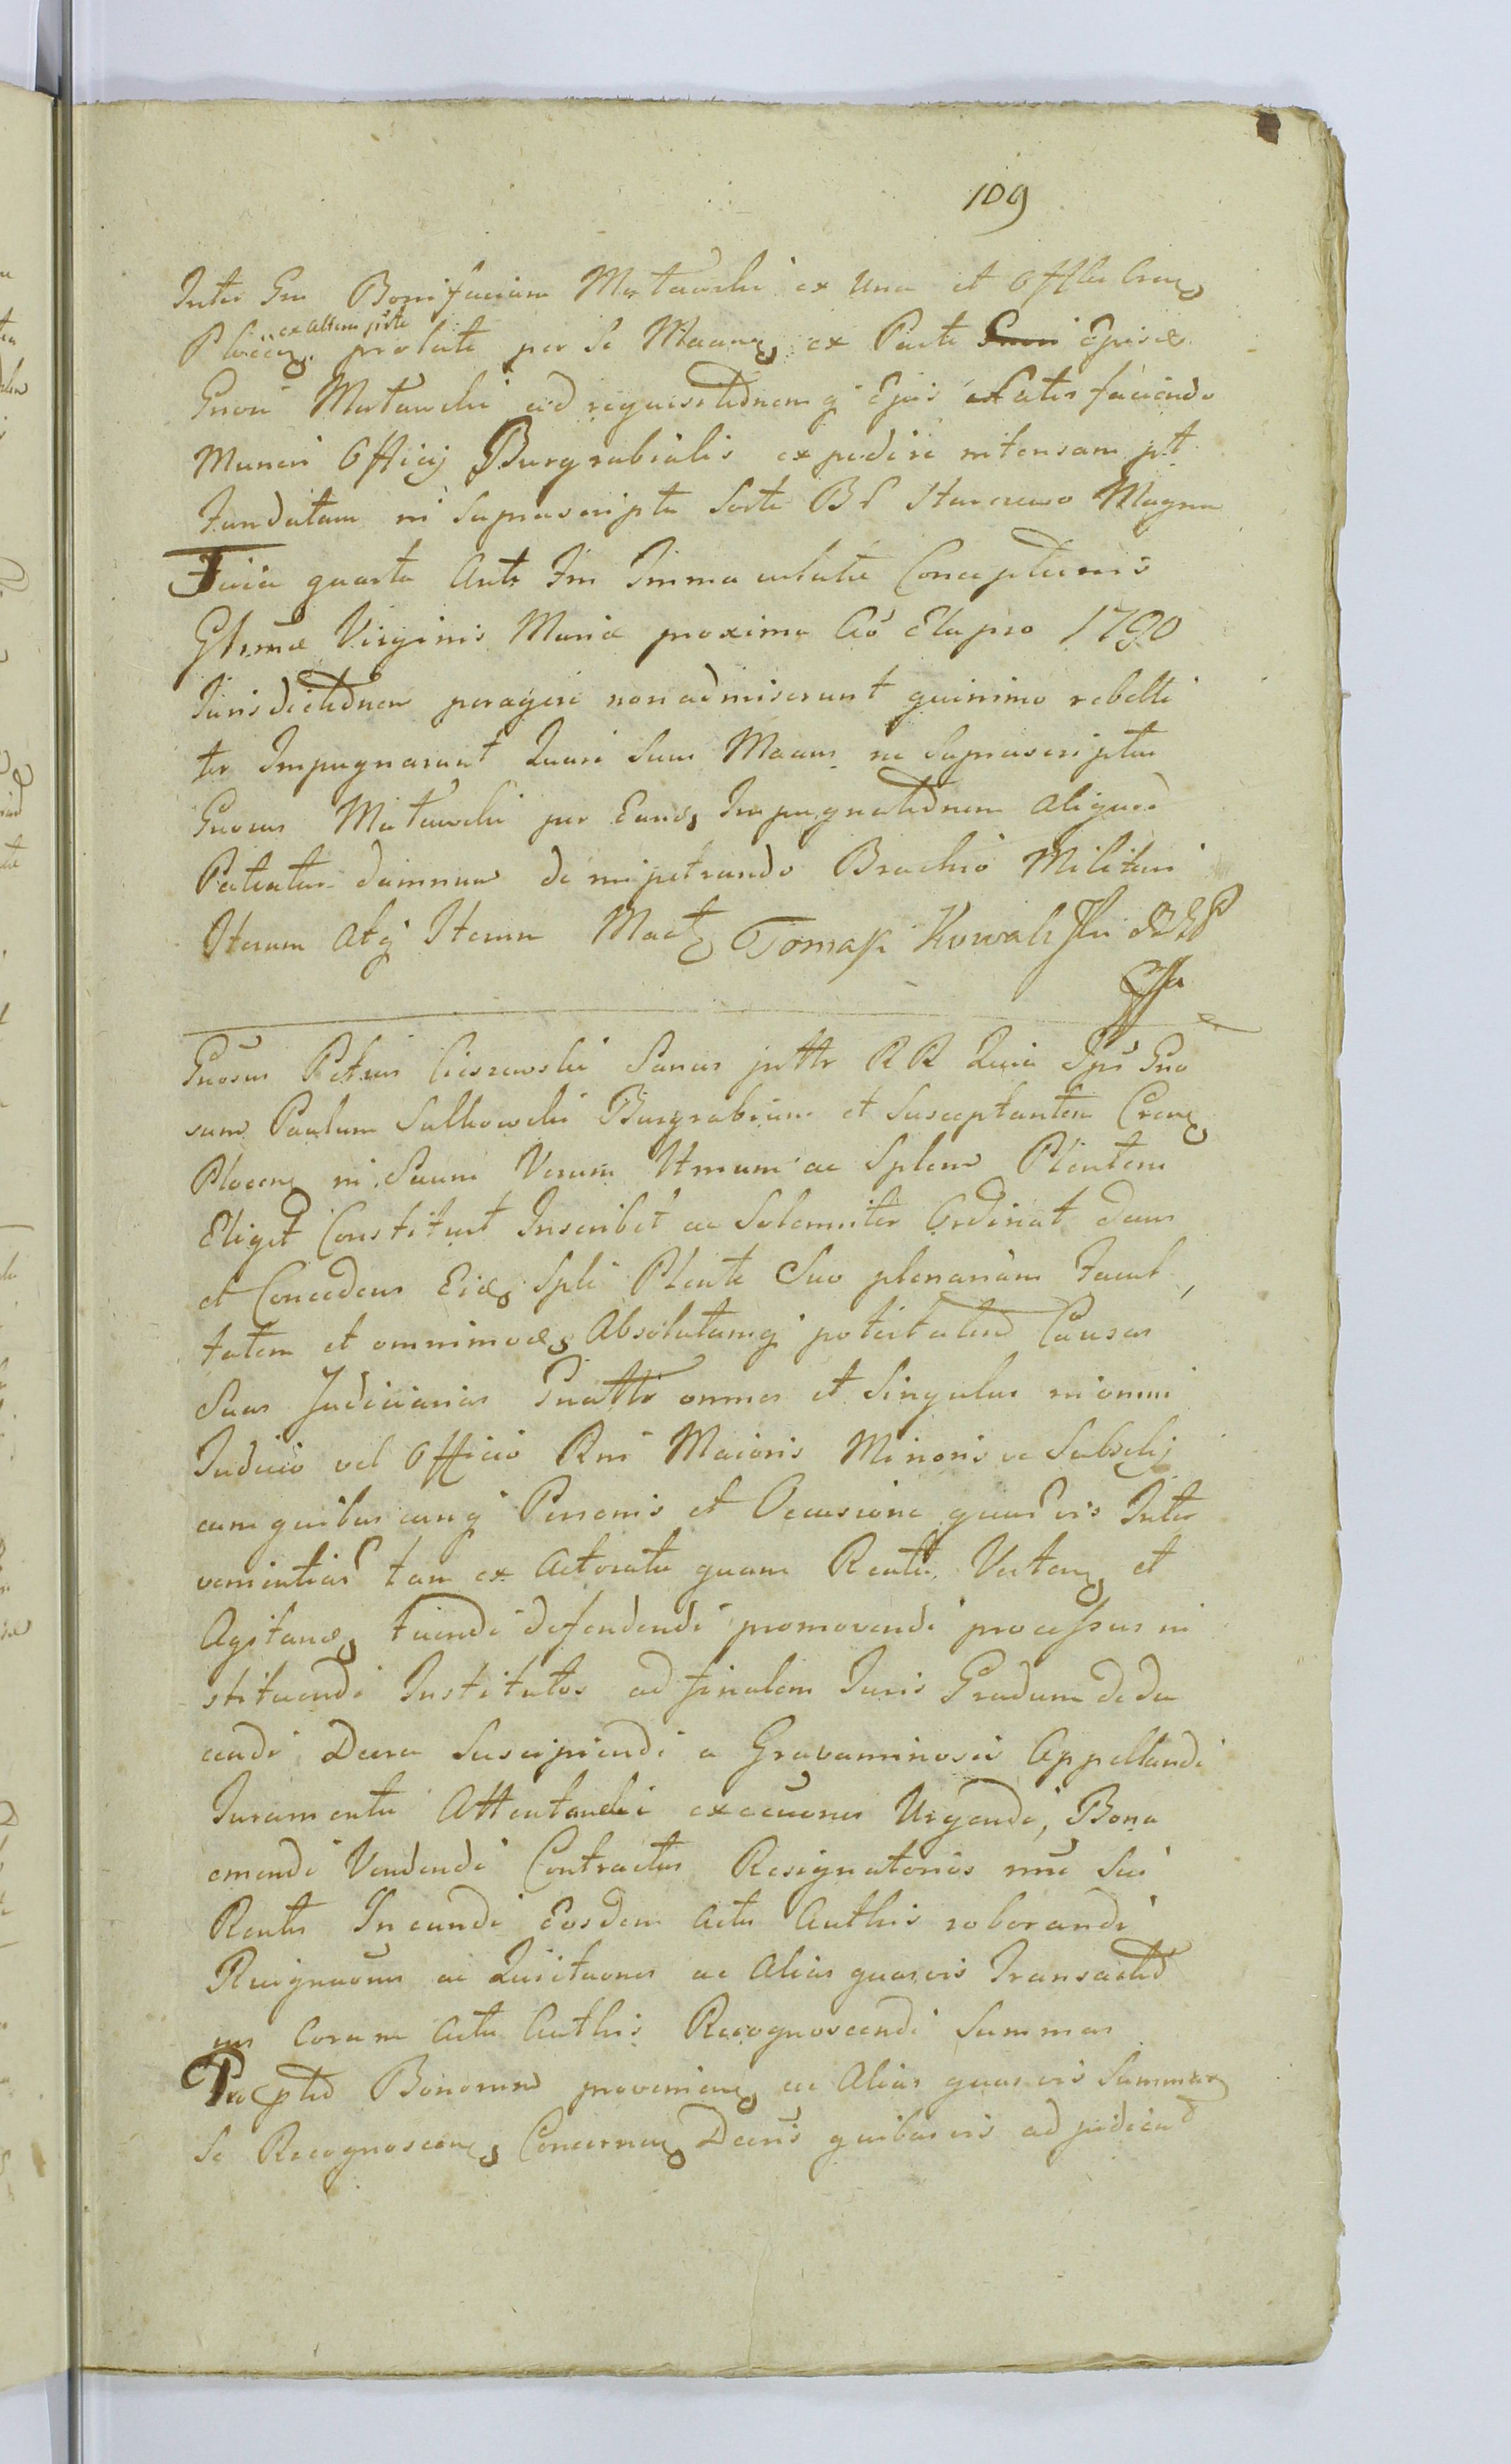 109
Inter Gm Bonifacium Mortawski ex Una et Offlu Cren
Plocen. ex altera pte prolate per Se Maan ex Parte Ejusd
Gnosi Mortawski ad requisitionemq Ejus Satis faciendo
Muneri Officij Burgrabialis expedire intensam pt
Fundatam in Suprascripta Sorte BS Starzewo Magna
Feria quarta Ante Fm Immaculatæ Conceptionis
Glsmæ Virginis Mariæ proxima Aó Elapso 1790
Jurisdictionem peragere non admiserunt quinimo rebelli
ter Impugnarunt Quare Suus Maans ne Suprascriptus
Gnosus Mortawski per Eand Impugnationem Aliquod
Patiatur damnum de impetrando Brachio Militari
Iterum Atq Iterum Mact Tomasz Kowalski
Gnosus Petrus Cieszewski Sanus pttr R R Quia Ips Gno
sum Paulum Sulkowski Burgrabium et Susceptantem Cren
Plocen in Suum Verum Ltmum ac Splem Plentem
Eligit Constituit Inscribit ac Solemniter Ordinat dans
et Concedens Eid Spli Plenti Suo plenariam Facul
tatem et omnimod Absolutamq potestatem Causas
Suas Judiciarias Gnattr omnes et Singulas in omni
Judicio vel Officio Rni Maioris Minoris ve Subselij
cum quibuscunq Personis et Occasione quavis Inter
venientias tam ex Actoratu quam Reatu Verten et
Agitand tuendi defendendi promovendi processus in
stituendi Institutos ad finalem Juris Gradum dedu
cendi Decra Suscipiendi a Gravaminosis Appellandi
Juramenta Attentandi execuones Urgendi, Bona
emendi Vendendi Contractus Resignatorios nne Sui
Rentis Ineundi Eosdem Actis Authis roborandi
Resignaones ac Quietaones ac Alias quasvis Transactio
nes Coram Actis Authis Recognoscendi Summas
Bonorum provenien ac Alias quasvis Summas
Se Recognoscen Concernen Decris quibusvis adjudicat